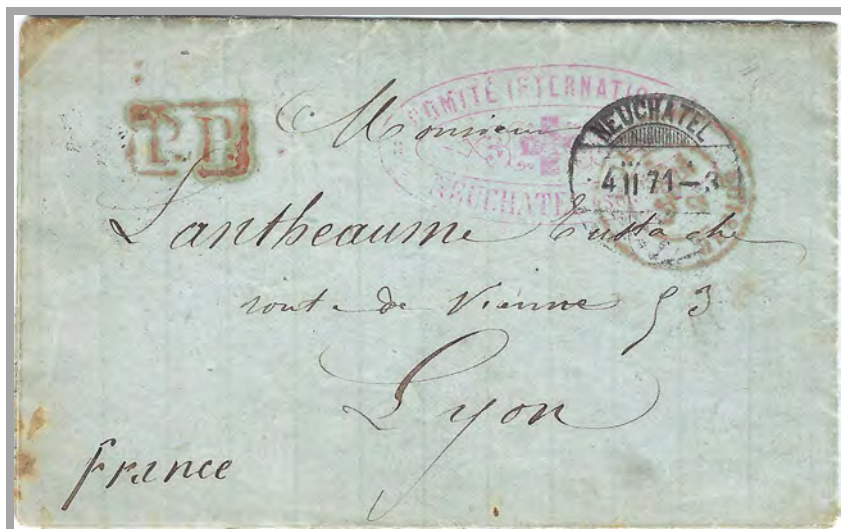 P.P.
COMITÉ INTERNATIO
NEUCHATEL
NEUCHATEL
4 II 71 - 3
Monsieur
Lantheaume Eustache
route de Vienne 53
Lyon
France